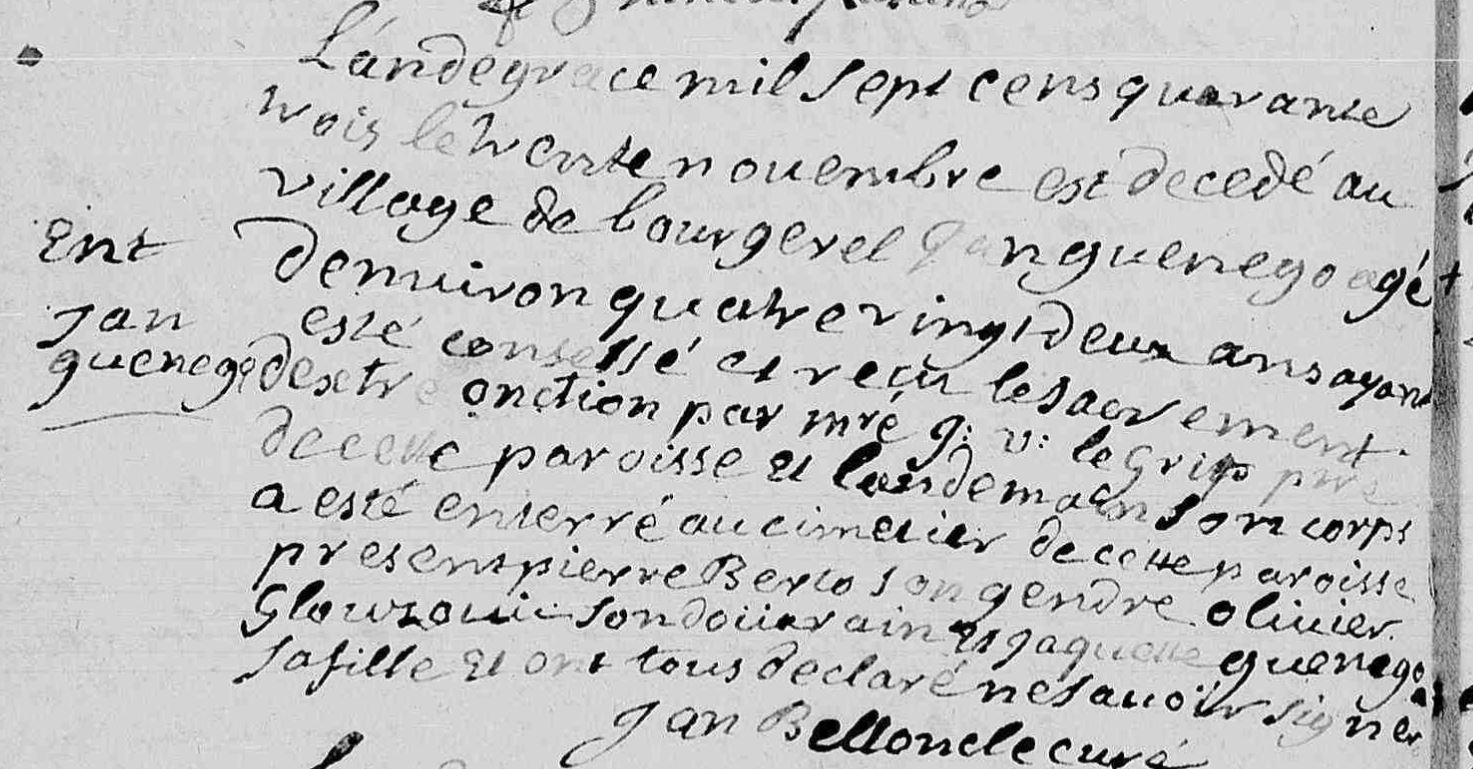 L'an de grace mil sept cens quarante
trois le trente nouembre est decedé au
village de bourgerel Jan guenego agé
Ent
denuiron quatre vingt deux ans ayant
Jan
esté confessé et reçu le sacrement
guenego
dextre onction par mre g: v: le Grip pre
de cette paroisse et landemain son corps
a esté enterré au cimetier de cette paroisse
present pierre Berto son gendre oliuier
son doüairain et Jaquette guenego
sa fille et ont tous declaré ne sauoir signer
Jan Bellon le curé